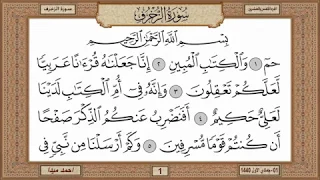 سورة الزخرف
سُورَةُ الزُّخْرُفِ
بِسْمِ اللَّهِ الرَّحْمَٰنِ الرَّحِيمِ
حمٓ ١ وَالْكِتَٰبِ الْمُبِينِ ٢ إِنَّا جَعَلْنَٰهُ قُرْءَٰنًا عَرَبِيًّا
لَّعَلَّكُمْ تَعْقِلُونَ ٣ وَإِنَّهُۥ فِىٓ أُمِّ الْكِتَٰبِ لَدَيْنَا
لَعَلِىٌّ حَكِيمٌ ٤ أَفَنَضْرِبُ عَنكُمُ الذِّكْرَ صَفْحًا
أَن كُنتُمْ قَوْمًا مُّسْرِفِينَ ٥ وَكَمْ أَرْسَلْنَا مِن نَّبِىٍّ فِى
1
1440